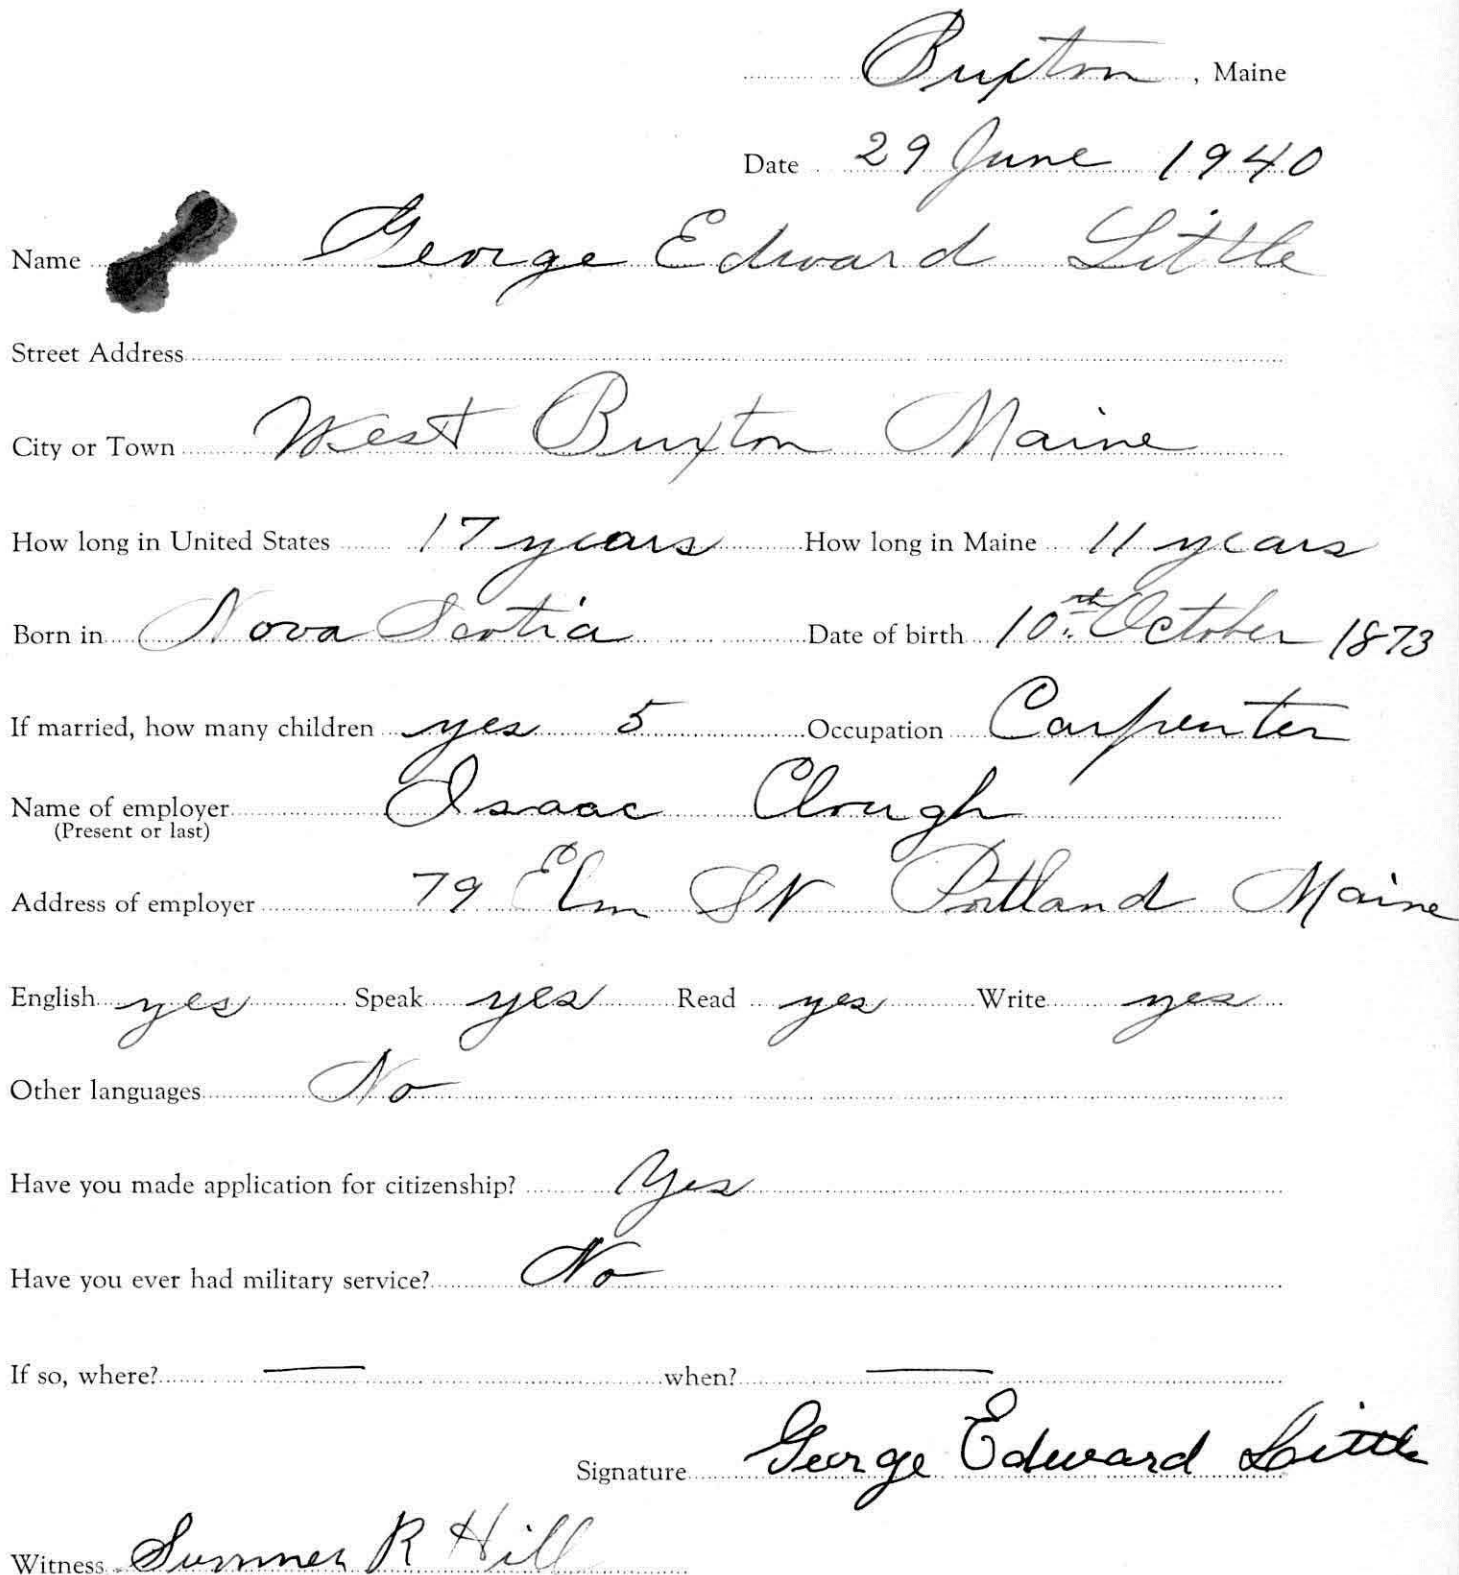 Buxton, Maine
Date 29 June 1940
Name George Edward Little
Street Address
City or Town West Buxton Maine
How long in United States 17 years How long in Maine 11 years
Born in Nova Scotia Date of birth 10th October 1873
If married, how many children yes 5 Occupation Carpenter
Name of employer Isaac Clough
(Present or last)
Address of employer 79 Elm St Portland Maine
English yes Speak yes Read yes Write yes
Other languages No
Have you made application for citizenship? Yes
Have you ever had military service? No
If so, where? — when? —
Signature George Edward Little
Witness Sumner R Hill